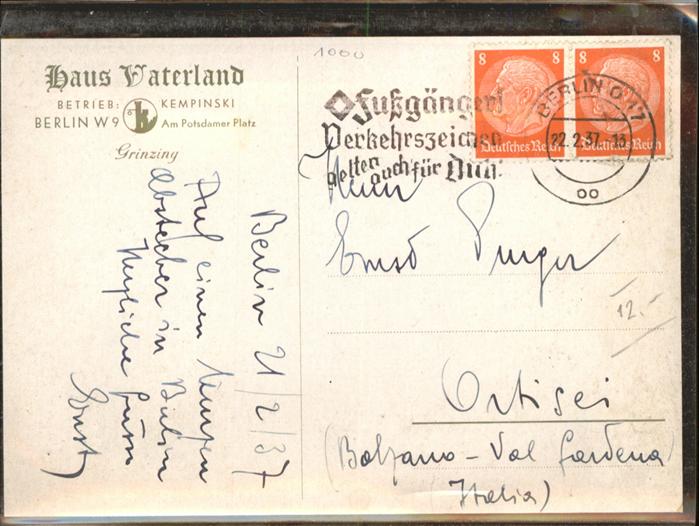 1000
Haus Vaterland
BETRIEB: KEMPINSKI
BERLIN W 9 Am Potsdamer Platz
Grinzing
Fußgänger!
Verkehrszeichen
gelten auch für Dich!
8 8
Deutsches Reich
8 8
Deutsches Reich
BERLIN O 17
22.2.37. 13
oo
Berlin 21/2/37
Auf einen kurzen
Abstecher in Berlin
Herzliche Grüsse
Ernst
Herrn
Ernst Purger
12.-
Ortisei
(Bolzano - Val Gardena
Italia)